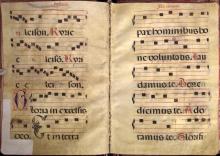 leison. Kyrie
eleison. Ky
leison.
Gloria in excelsis
Deo. Et in terra
pax hominibus bo
ne voluntatis. Lau
damus te. Bene
dicimus te. Ado
ramus te. Glorifi